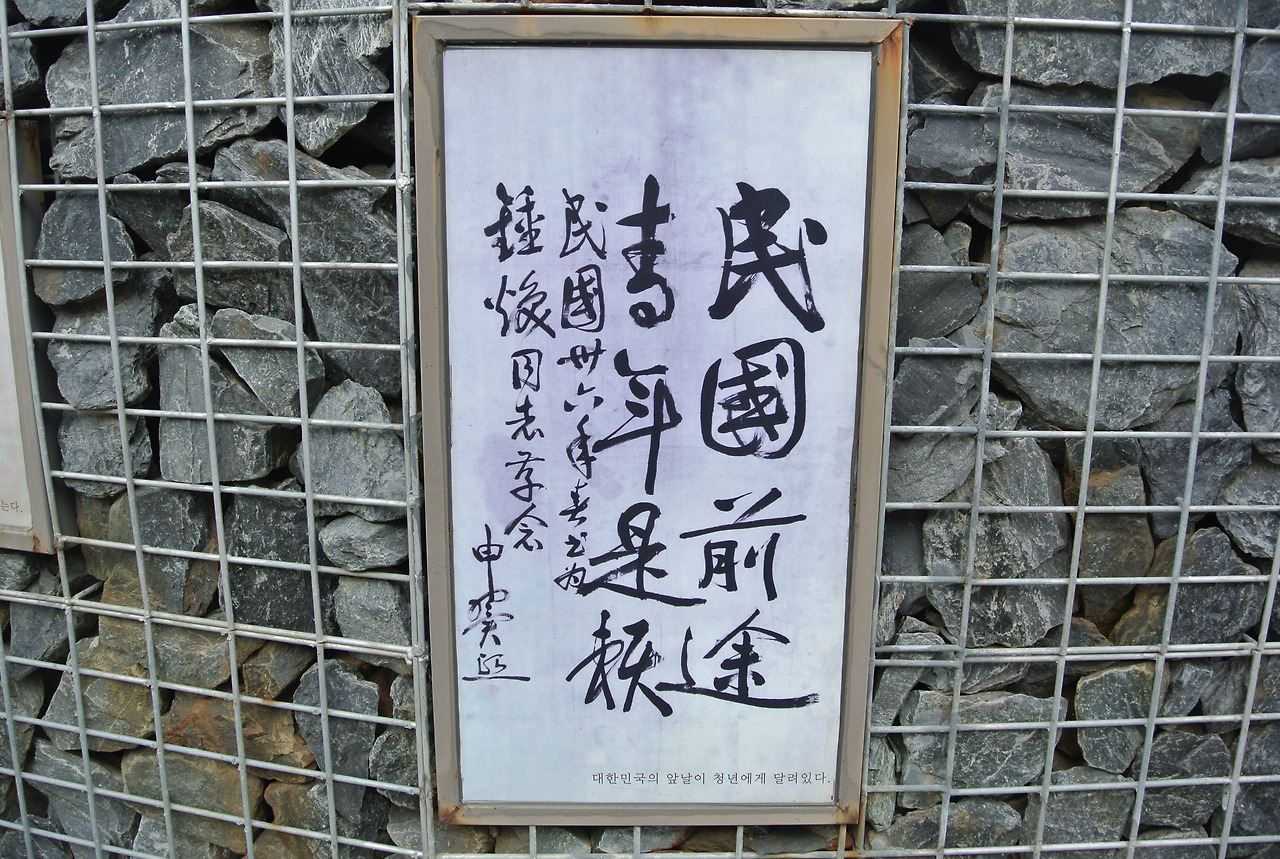 民國前途
青年是賴
民國卅六年春书为
鍾煥同志存念
申翼熙
대한민국의 앞날이 청년에게 달려있다.
는다.